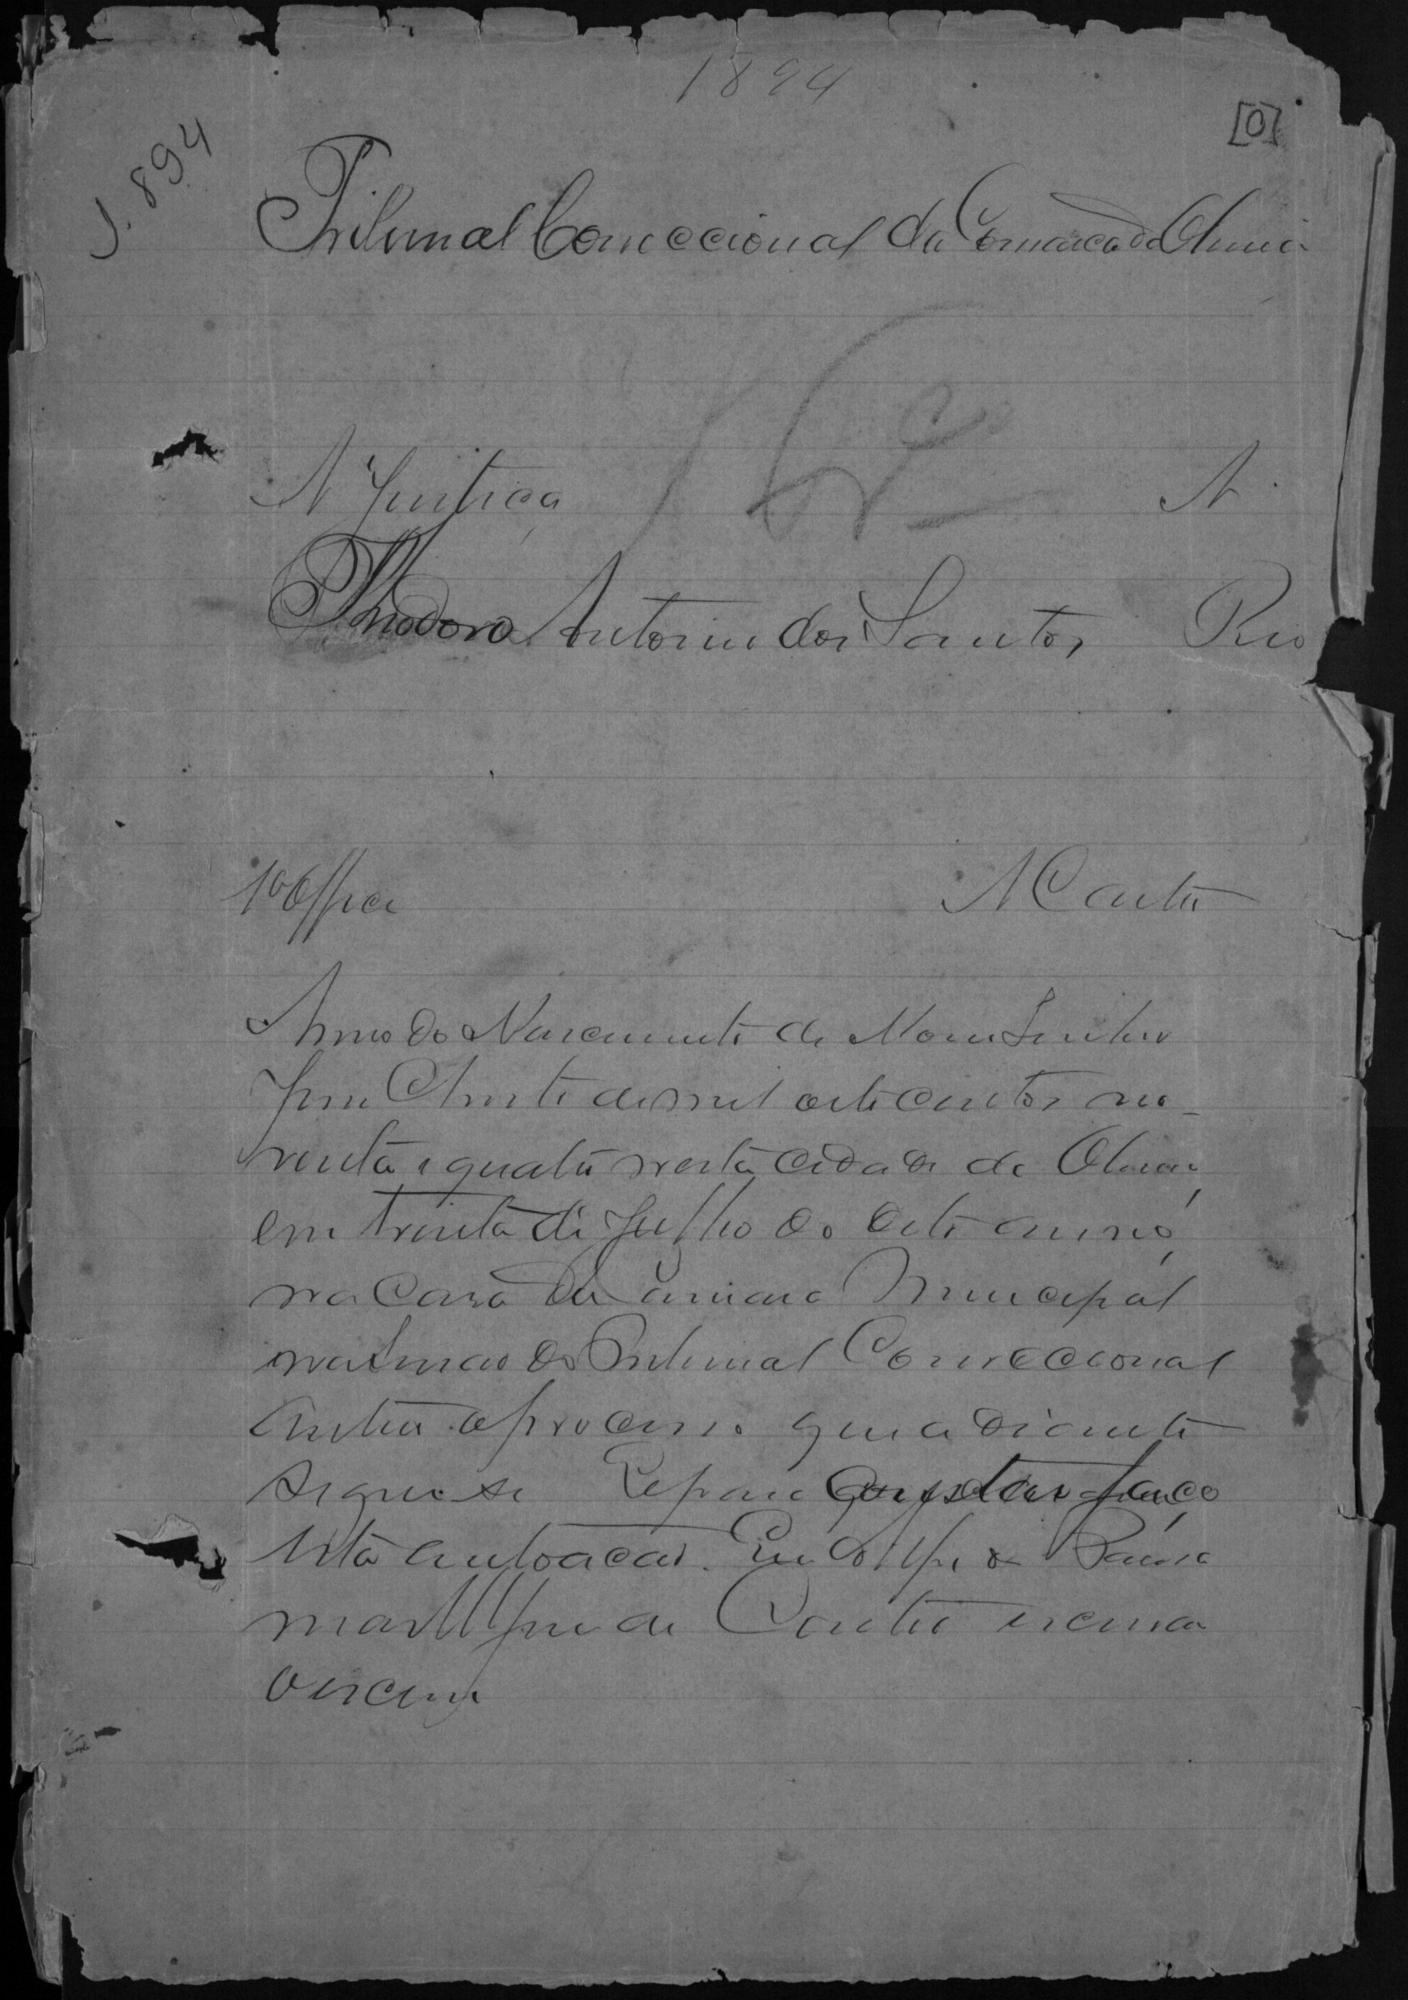 1894
[0]
J. 894
Tribunal Correccional da Comarca de Olinda
A Justiça A.
Theodoro Antonio dos Santos Reo
1º Officio
Anno do Nascimento de Nosso Senhor
Jesus Christo de mil oito centos no-
venta e quatro nesta cidade de Olinda,
em trinta de Julho do dito anno,
na Casa da Camara Municipal
na do Tribunal Correccional
autuei o processo que adiante
segue-se faço
esta autoacão. Eu
de escrivão
escrevi